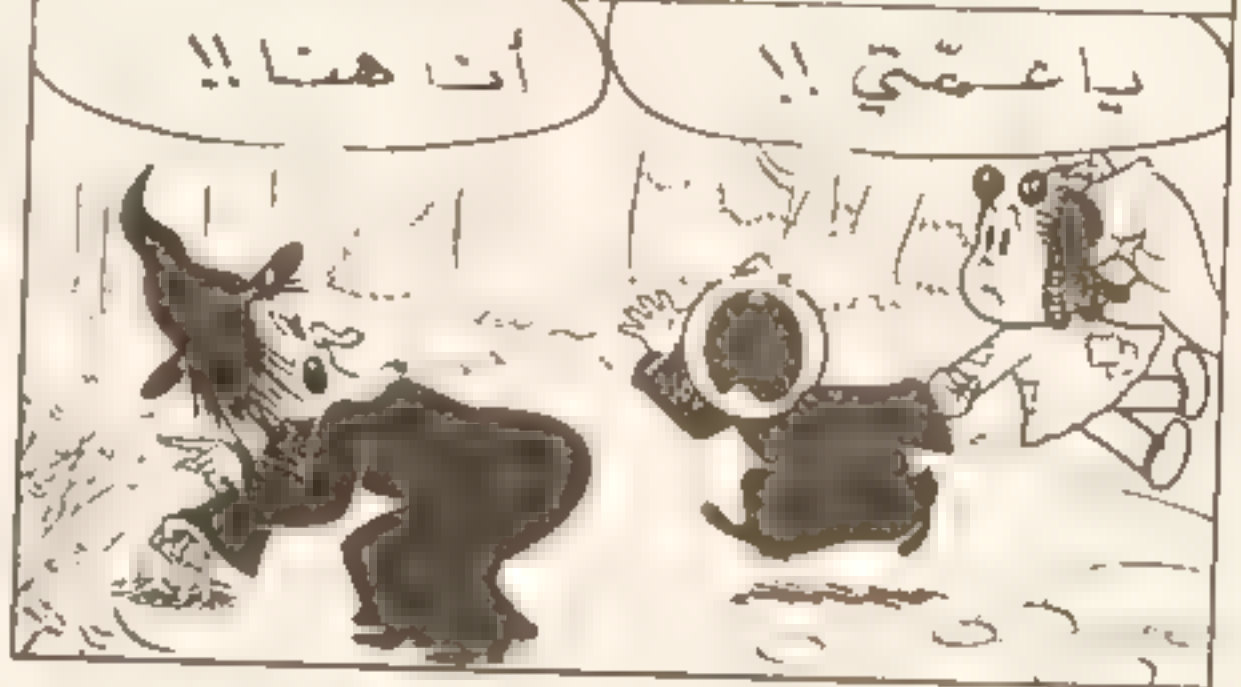 يا عمّي !!
أنا هنا !!